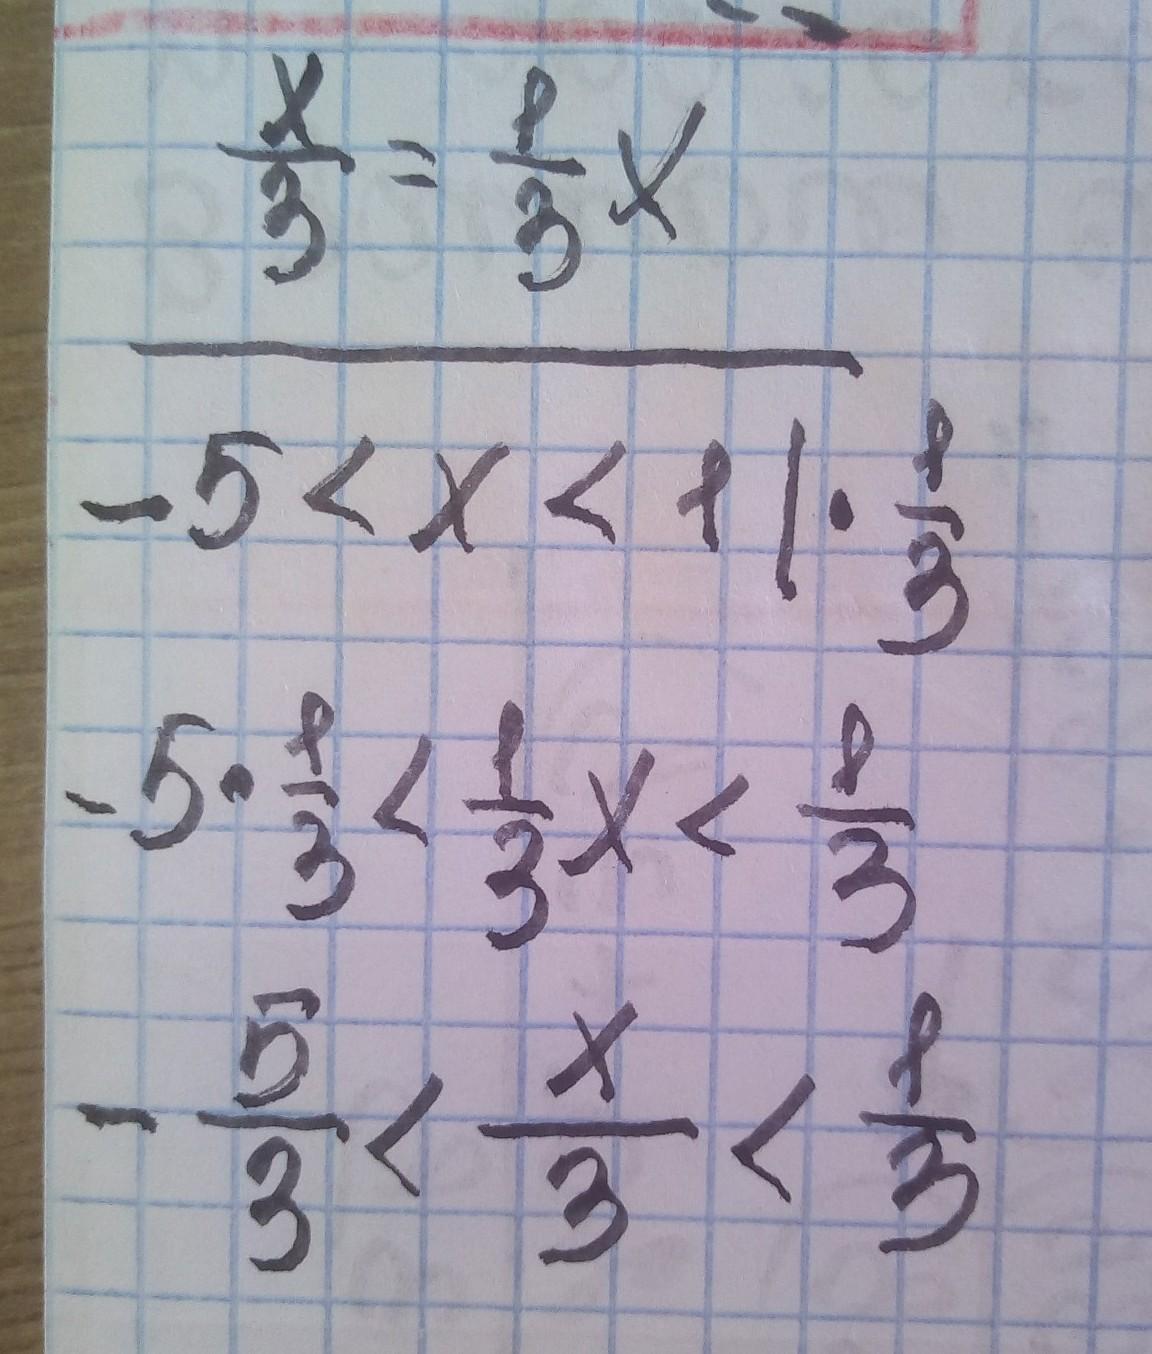 x/3 = 1/3 x
-5 < x < 1 | · 1/3
-5 · 1/3 < 1/3 x < 1/3
- 5/3 < x/3 < 1/3